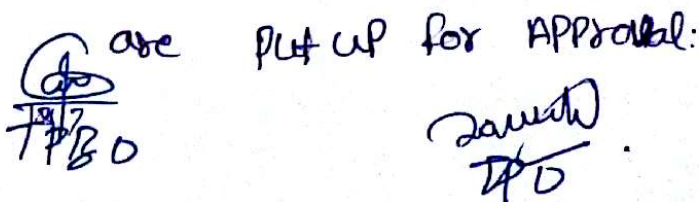 are Put up for Approval:
TPBO
TPO